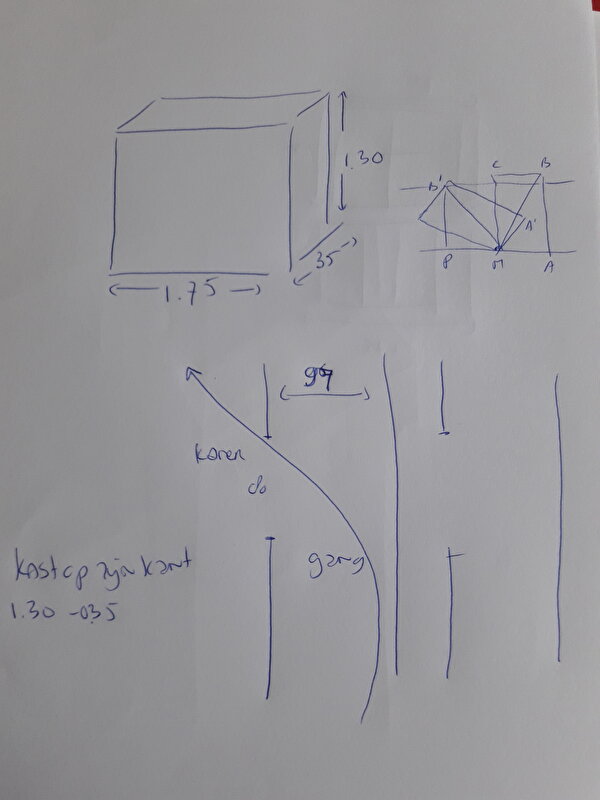 1.30
35
1.75
C B
B' A'
P M A
97
Karen
do
gang
Kast op zijn kant
1.30 - 035